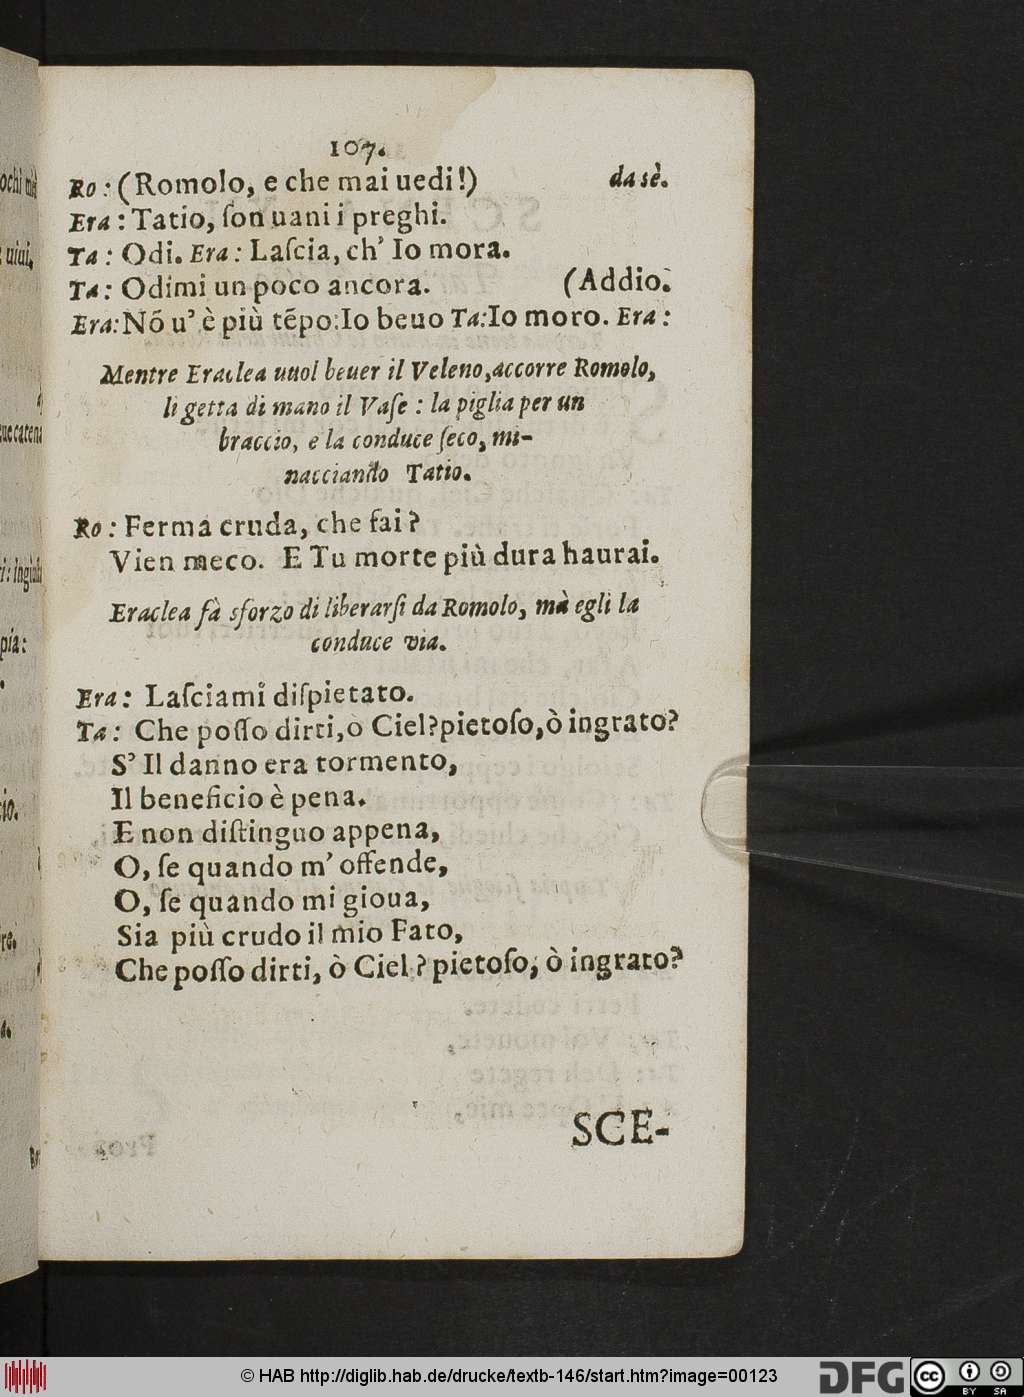 107.
Ro : (Romolo, e che mai uedi!) da sè.
Era : Tatio, ſon uani i preghi.
Ta : Odi. Era : Laſcia, ch' Io mora.
Ta : Odimi un poco ancora. (Addio.
Era: Nõ u' è più tẽpo: Io beuo Ta: Io moro. Era :
Mentre Eraclea uuol beuer il Veleno, accorre Romolo,
li getta di mano il Vaſe : la piglia per un
braccio, e la conduce ſeco, mi-
nacciando Tatio.
Ro : Ferma cruda, che fai?
Vien meco. E Tu morte più dura haurai.
Eraclea fà sforzo di liberarſi da Romolo, mà egli la
conduce via.
Era : Laſciami diſpietato.
Ta : Che poſſo dirti, o Ciel? pietoſo, ò ingrato?
S' Il danno era tormento,
Il beneficio è pena.
E non diſtinguo appena,
O, ſe quando m' offende,
O, ſe quando mi gioua,
Sia più crudo il mio Fato,
Che poſſo dirti, ò Ciel? pietoſo, ò ingrato?
SCE-
© HAB http://diglib.hab.de/drucke/textb-146/start.htm?image=00123
DFG
cc BY SA